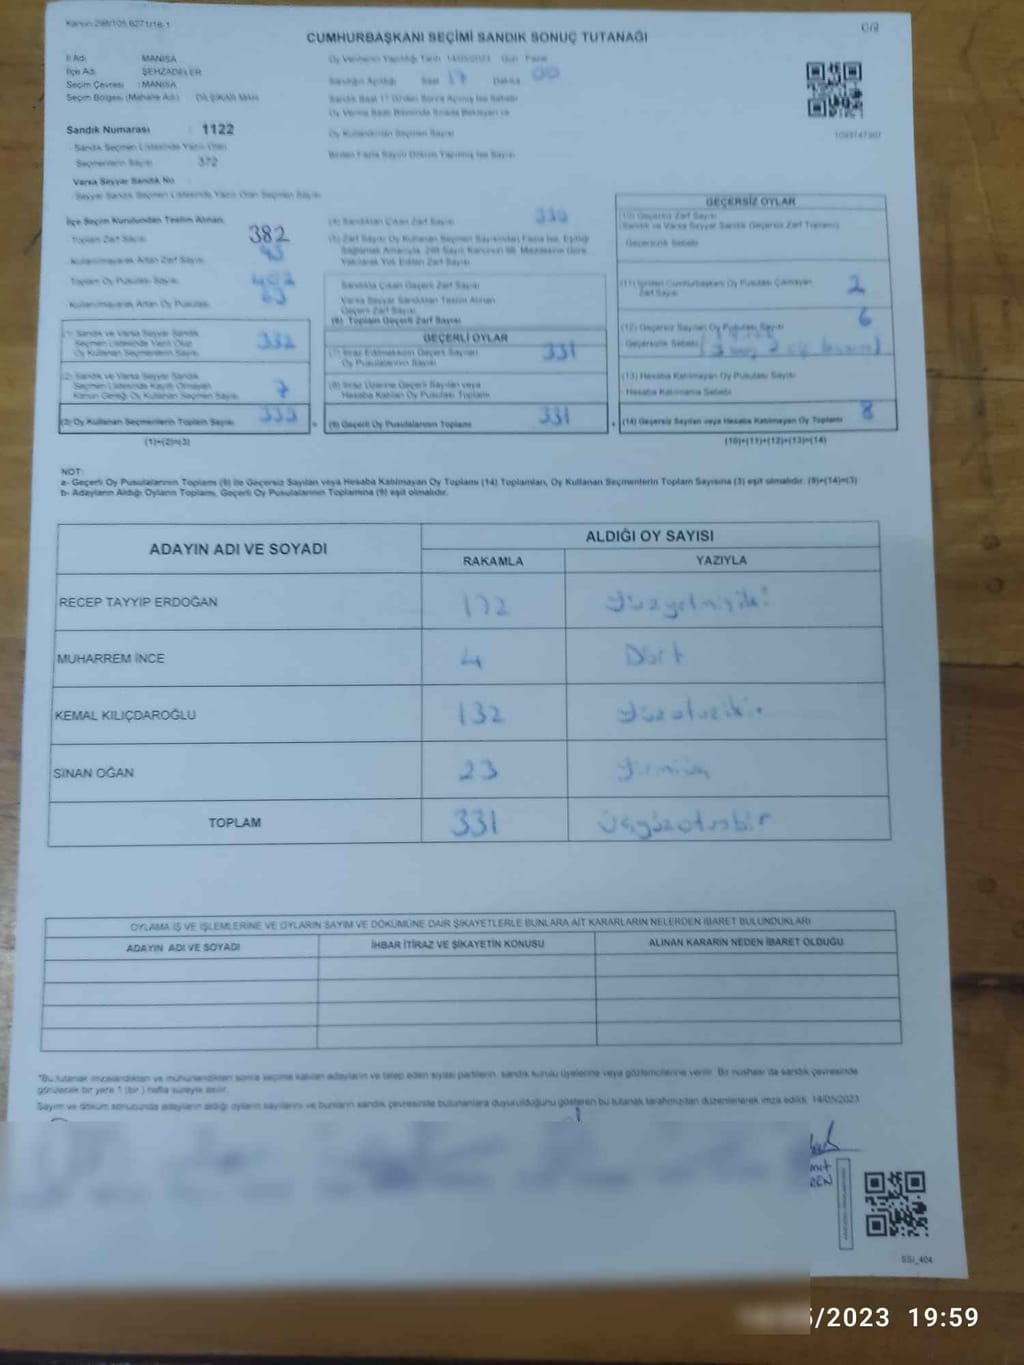 Kanun:298/105,6271/18-1
C/2
CUMHURBAŞKANI SEÇİMİ SANDIK SONUÇ TUTANAĞI
İl Adı : MANİSA
İlçe Adı : ŞEHZADELER
Seçim Çevresi : MANİSA
Seçim Bölgesi (Mahalle Adı) : DİLŞİKAR MAH.
Oy Vermenin Yapıldığı Tarih 14/05/2023 Gün Pazar
Sandığın Açıldığı Saat 17 Dakika 00
Oy Kullandırılan Seçmen Sayısı
Birden Fazla Sayım Döküm Yapılmış İse Sayısı
Sandık Numarası : 1122
Sandık Seçmen Listesinde Yazılı Olan
Seçmenlerin Sayısı : 372
Varsa Seyyar Sandık No
Seyyar Sandık Seçmen Listesinde Yazılı Olan Seçmen Sayısı
İlçe Seçim Kurulundan Teslim Alınan
Toplam Zarf Sayısı 382
Kullanılmayarak Artan Zarf Sayısı
Toplam Oy Pusulası Sayısı
Kullanılmayarak Artan Oy Pusulası 63
(1) Sandık ve Varsa Seyyar Sandık
Seçmen Listesinde Yazılı Olup
Oy Kullanan Seçmenlerin Sayısı 332
(2) Sandık ve Varsa Seyyar Sandık
Seçmen Listesinde Kayıtlı Olmayan
Kanun Gereği Oy Kullanan Seçmen Sayısı 7
(3) Oy Kullanan Seçmenlerin Toplam Sayısı
(1)+(2)=(3)
(4) Sandıktan Çıkan Zarf Sayısı
(5) Zarf Sayısı Oy Kullanan Seçmen Sayısından Fazla İse, Eşitliği
Sağlamak Amacıyla, 298 Sayılı Kanunun 98. Maddesine Göre
Yakılarak Yok Edilen Zarf Sayısı
Sandıkta Çıkan Geçerli Zarf Sayısı
Varsa Seyyar Sandıktan Teslim Alınan
Geçerli Zarf Sayısı
(6) Toplam Geçerli Zarf Sayısı
GEÇERLİ OYLAR
(7) İtiraz Edilmeksizin Geçerli Sayılan
Oy Pusulalarının Sayısı 331
(8) İtiraz Üzerine Geçerli Sayılan veya
Hesaba Katılan Oy Pusulası Toplamı
(9) Geçerli Oy Pusulalarının Toplamı 331
GEÇERSİZ OYLAR
(10) Geçersiz Zarf Sayısı
(Sandık ve Varsa Seyyar Sandık Geçersiz Zarf Toplamı)
Geçersizlik Sebebi
(11) İçinden Cumhurbaşkanı Oy Pusulası Çıkmayan
Zarf Sayısı 2
(12) Geçersiz Sayılan Oy Pusulası Sayısı 6
Geçersizlik Sebebi
(13) Hesaba Katılmayan Oy Pusulası Sayısı
Hesaba Katılmama Sebebi
(14) Geçersiz Sayılan veya Hesaba Katılmayan Oy Toplamı 8
(10)+(11)+(12)+(13)=(14)
NOT:
a- Geçerli Oy Pusulalarının Toplamı (9) ile Geçersiz Sayılan veya Hesaba Katılmayan Oy Toplamı (14) Toplamları, Oy Kullanan Seçmenlerin Toplam Sayısına (3) eşit olmalıdır. (9)+(14)=(3)
b- Adayların Aldığı Oyların Toplamı, Geçerli Oy Pusulalarının Toplamına (9) eşit olmalıdır.
ADAYIN ADI VE SOYADI
ALDIĞI OY SAYISI
RAKAMLA
YAZIYLA
RECEP TAYYİP ERDOĞAN 172 yüzyetmişiki
MUHARREM İNCE 4 Dört
KEMAL KILIÇDAROĞLU 132 yüzotuziki
SİNAN OĞAN 23 yirmiüç
TOPLAM 331 üçyüzotuzbir
OYLAMA İŞ VE İŞLEMLERİNE VE OYLARIN SAYIM VE DÖKÜMÜNE DAİR ŞİKAYETLERLE BUNLARA AİT KARARLARIN NELERDEN İBARET BULUNDUKLARI
ADAYIN ADI VE SOYADI
İHBAR İTİRAZ VE ŞİKAYETİN KONUSU
ALINAN KARARIN NEDEN İBARET OLDUĞU
*Bu tutanak imzalandıktan ve mühürlendikten sonra seçime katılan adayların ve talep eden siyasi partilerin, sandık kurulu üyelerine veya gözlemcilerine verilir. Bir nüshası da sandık çevresinde
görülecek bir yere 1 (bir) hafta süreyle asılır.
Sayım ve döküm sonucunda adayların aldığı oyların sayılarını ve bunların sandık çevresinde bulunanlara duyurulduğunu gösteren bu tutanak tarafımızdan düzenlenerek imza edildi. 14/05/2023
SSİ_404
/2023 19:59